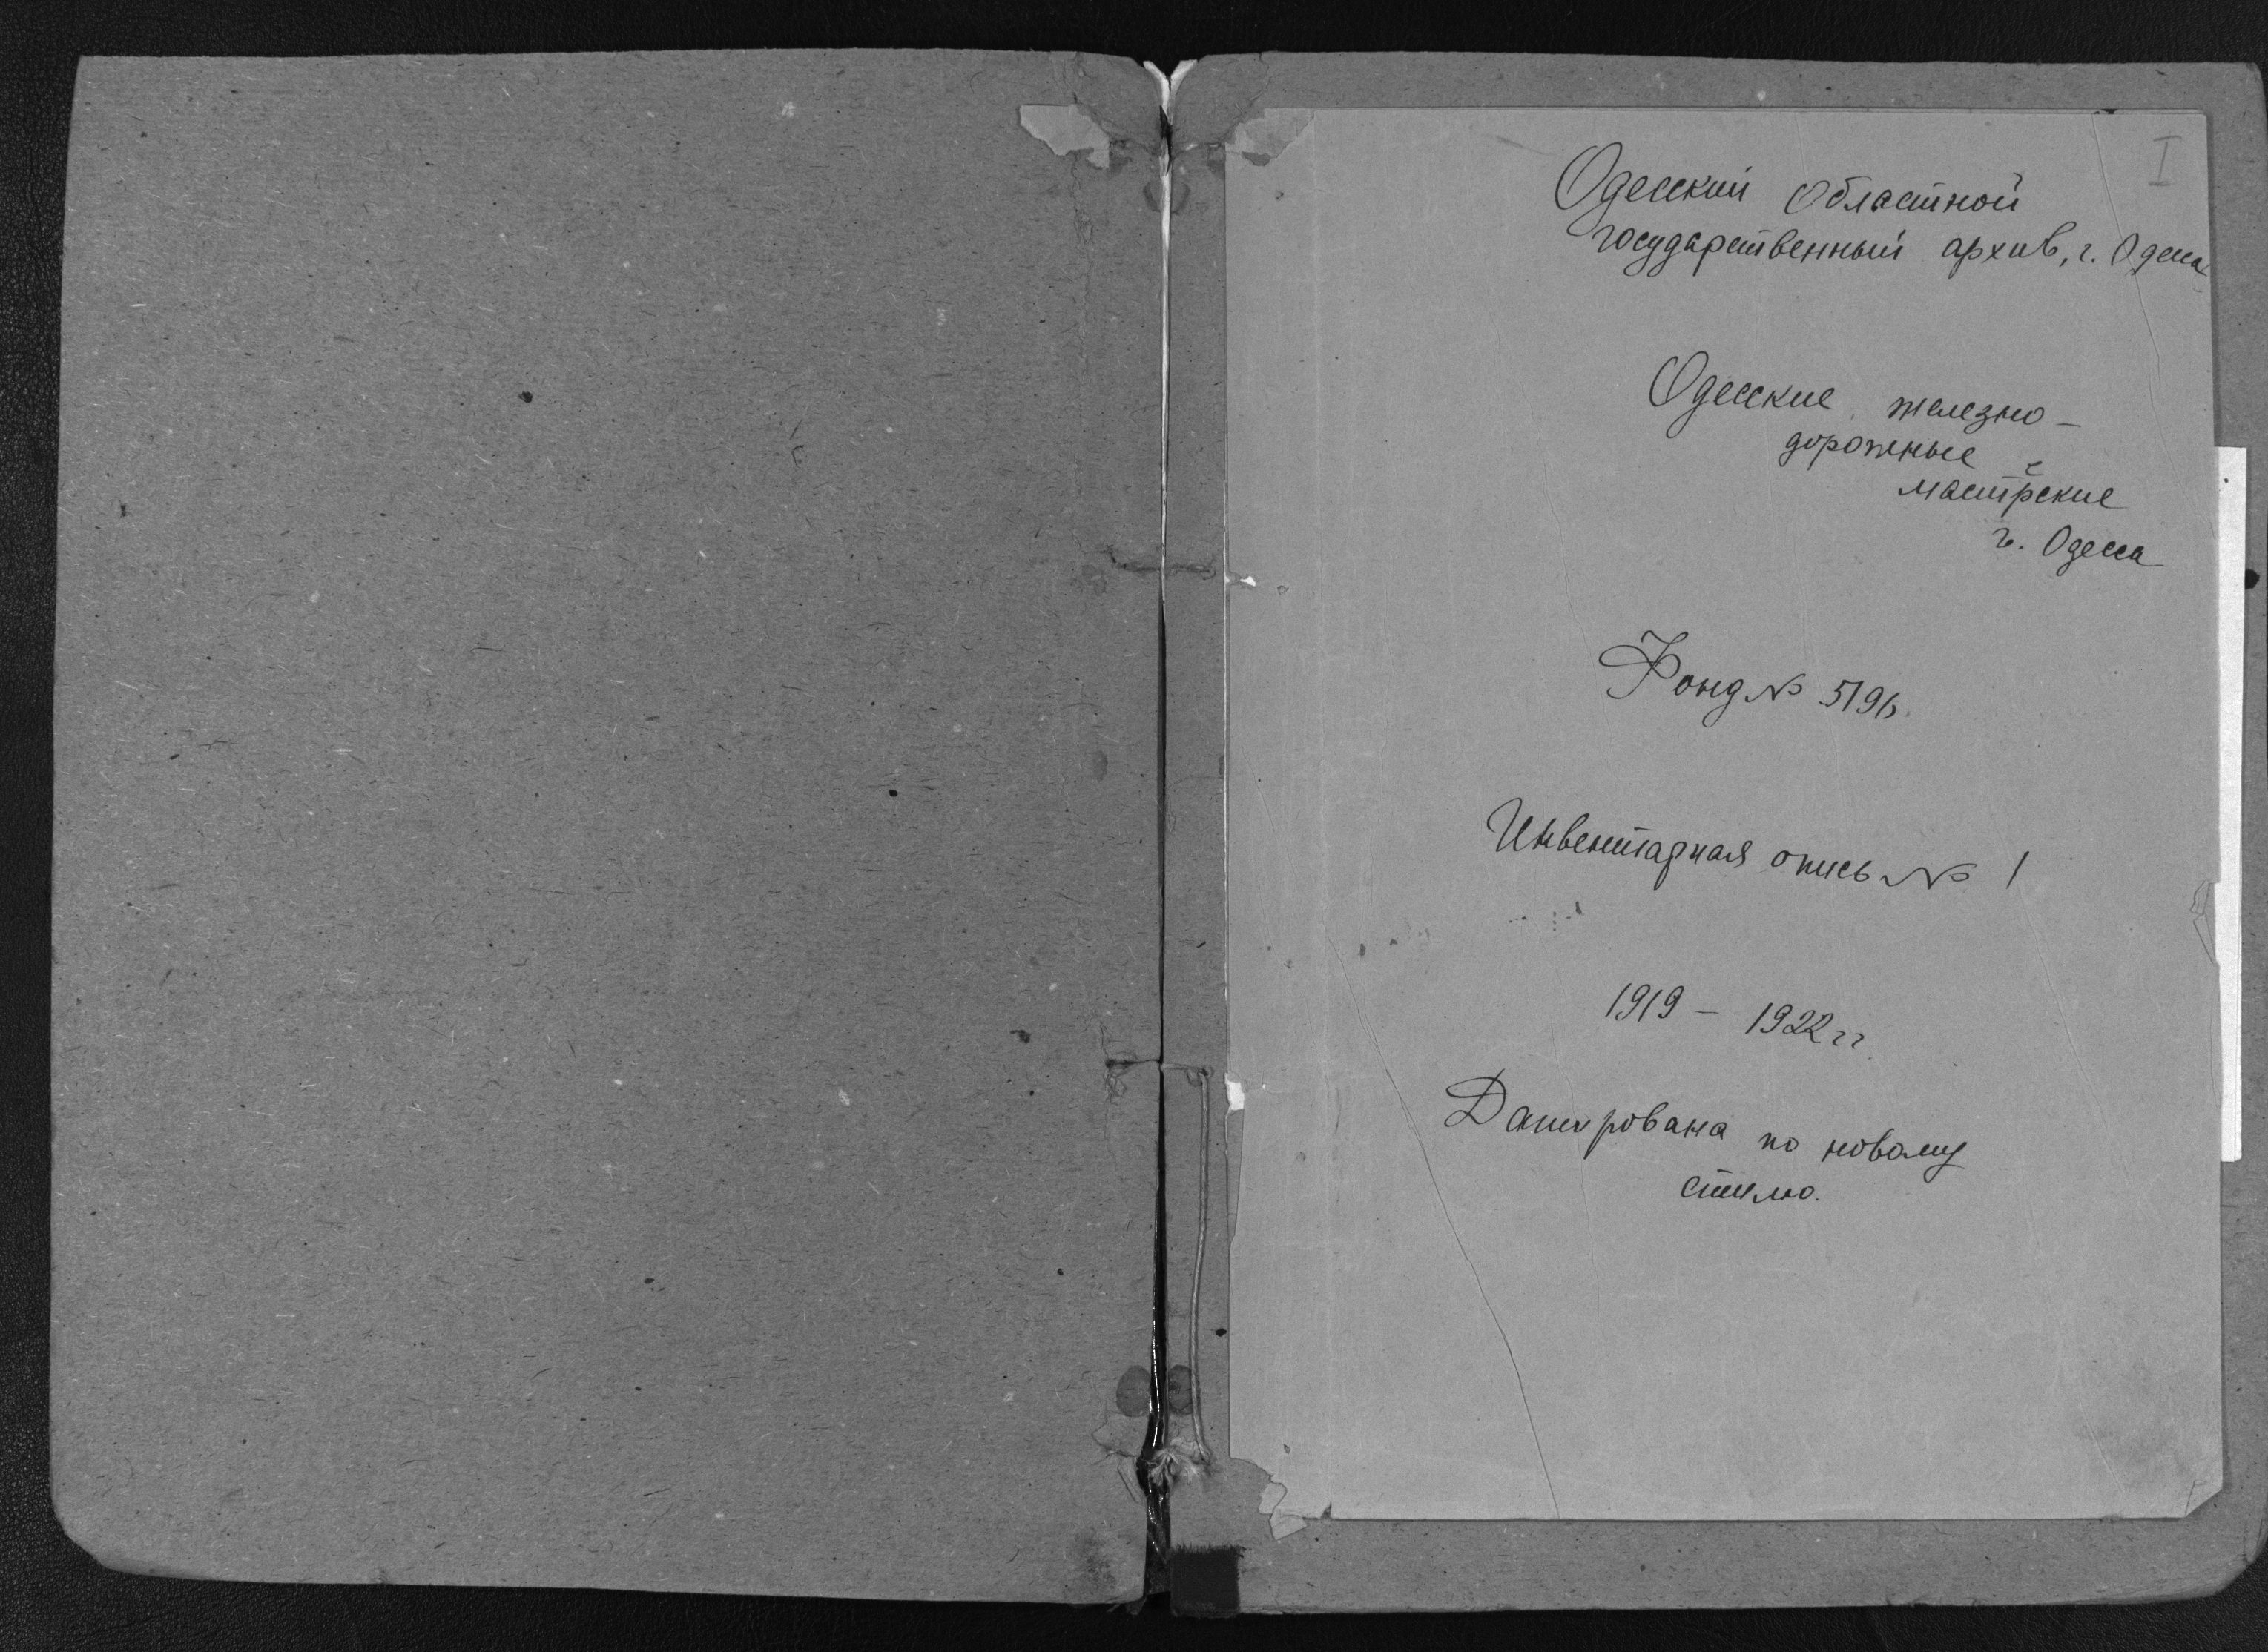 I
Одесский Областной
государственный архив, г. Одесса
Одесские железно-
дорожные
мастерские
г. Одесса
Фонд № 5196
Инвентарная опись № 1
1919 – 1922 гг.
Датирована по новому
стилю.